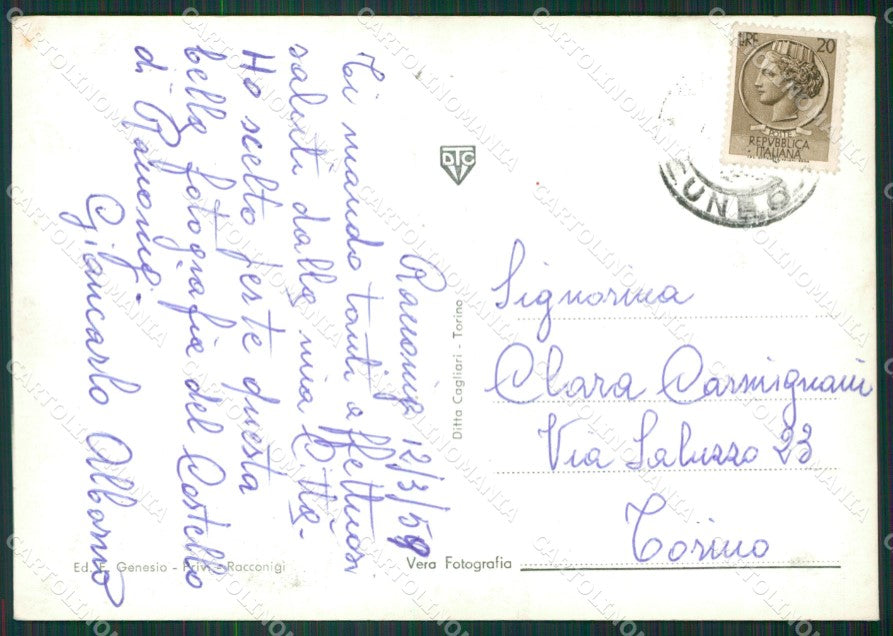 Racconigi 12/3/59
Ti mando tanti affettuosi
saluti dalla mia Città -
Ho scelto per te questa
bella fotografia del Castello
di Racconigi -
Giancarlo Albano
DTC
Ditta Cagliari - Torino
LIRE 20
POSTE
REPVBBLICA
ITALIANA
CUNEO
Signorina
Clara Carmignani
Via Saluzzo 23
Torino
Ed. F. Genesio - Priv. - Racconigi
Vera Fotografia
CARTOLINOMANIA